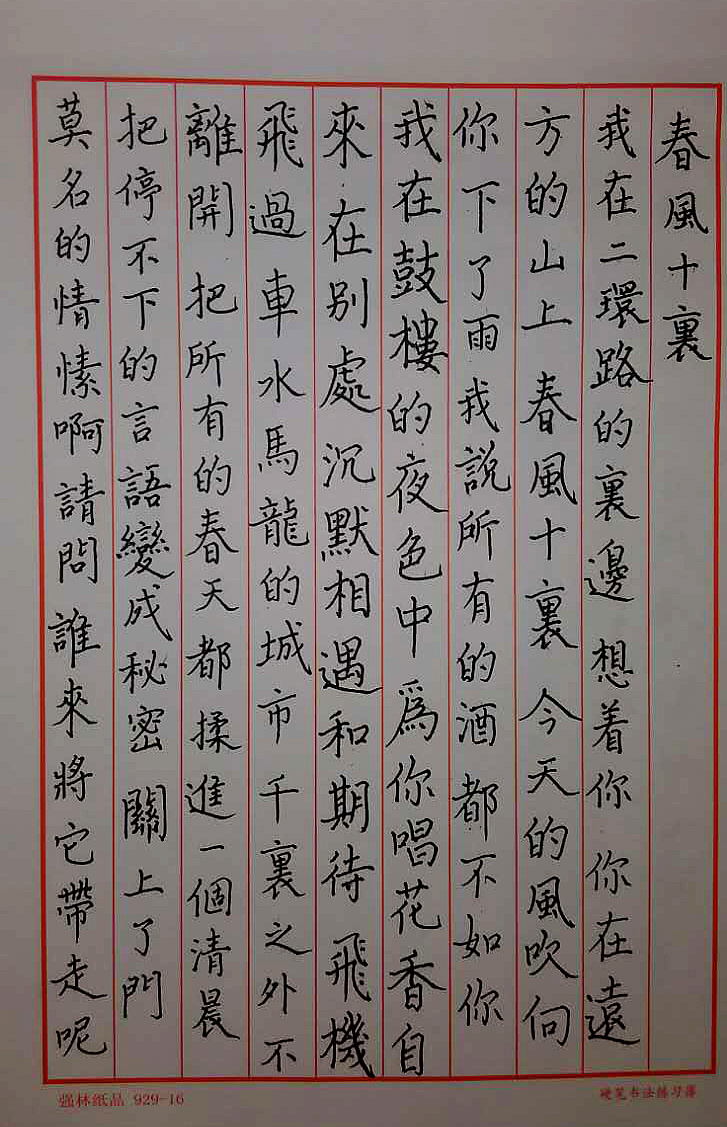 春風十裏
我在二環路的裏邊 想着你 你在遠
方的山上 春風十裏 今天的風吹向
你 下了雨 我說所有的酒都不如你
我在鼓樓的夜色中 爲你唱花香自
來 在别處沉默相遇和期待 飛機
飛過車水馬龍的城市 千裏之外 不
離開 把所有的春天都揉進一個清晨
把停不下的言語變成秘密 關上了門
莫名的情愫啊 請問 誰來將它帶走呢
强林纸品 929-16
硬笔书法练习簿